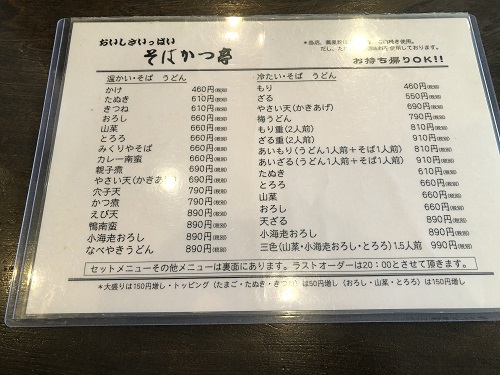 おいしさいっぱい
そばかつ亭
お持ち帰りOK!!
温かい・そば うどん
かけ 460円(税別)
たぬき 610円(税別)
きつね 610円(税別)
おろし 660円(税別)
山菜 660円(税別)
とろろ 660円(税別)
みくりやそば 660円(税別)
カレー南蛮 660円(税別)
親子煮 690円(税別)
やさい天(かきあげ) 690円(税別)
穴子天 790円(税別)
かつ煮 790円(税別)
えび天 890円(税別)
鴨南蛮 890円(税別)
小海老おろし 890円(税別)
なべやきうどん 890円(税別)
冷たい・そば うどん
もり 460円(税別)
ざる 550円(税別)
やさい天(かきあげ) 690円(税別)
梅うどん 790円(税別)
もり重(2人前) 810円(税別)
ざる重(2人前) 910円(税別)
あいもり(うどん1人前+そば1人前) 810円(税別)
あいざる(うどん1人前+そば1人前) 910円(税別)
たぬき 610円(税別)
とろろ 660円(税別)
山菜 660円(税別)
おろし 660円(税別)
天ざる 890円(税別)
小海老おろし 890円(税別)
三色(山菜・小海老おろし・とろろ)1.5人前 990円(税別)
セットメニューその他メニューは裏面にあります。ラストオーダーは20:00とさせて頂きます。
*大盛りは150円増し・トッピング(たまご・たぬき・きつね)は50円増し(おろし・山菜・とろろ)は150円増し